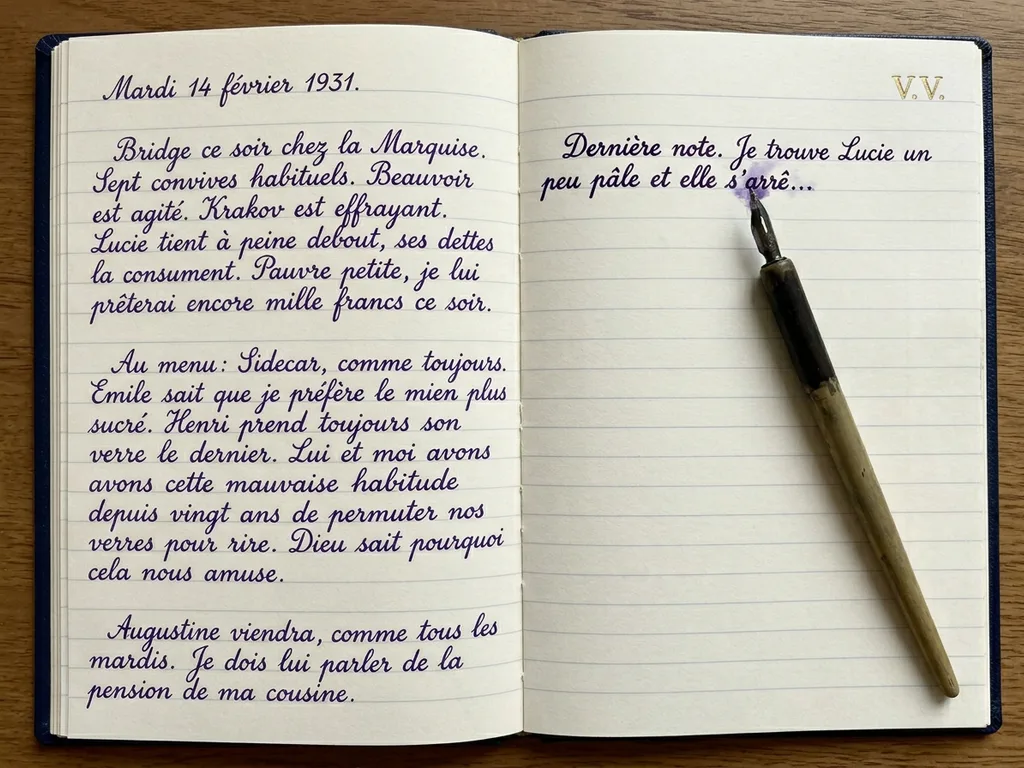 Mardi 14 février 1931.
Bridge ce soir chez la Marquise.
Sept convives habituels. Beauvoir
est agité. Krakov est effrayant.
Lucie tient à peine debout, ses dettes
la consument. Pauvre petite, je lui
prêterai encore mille francs ce soir.
Au menu : Sidecar, comme toujours.
Emile sait que je préfère le mien plus
sucré. Henri prend toujours son
verre le dernier. Lui et moi avons
avons cette mauvaise habitude
depuis vingt ans de permuter nos
verres pour rire. Dieu sait pourquoi
cela nous amuse.
Augustine viendra, comme tous les
mardis. Je dois lui parler de la
pension de ma cousine.
V.V.
Dernière note. Je trouve Lucie un
peu pâle et elle s'arrê...